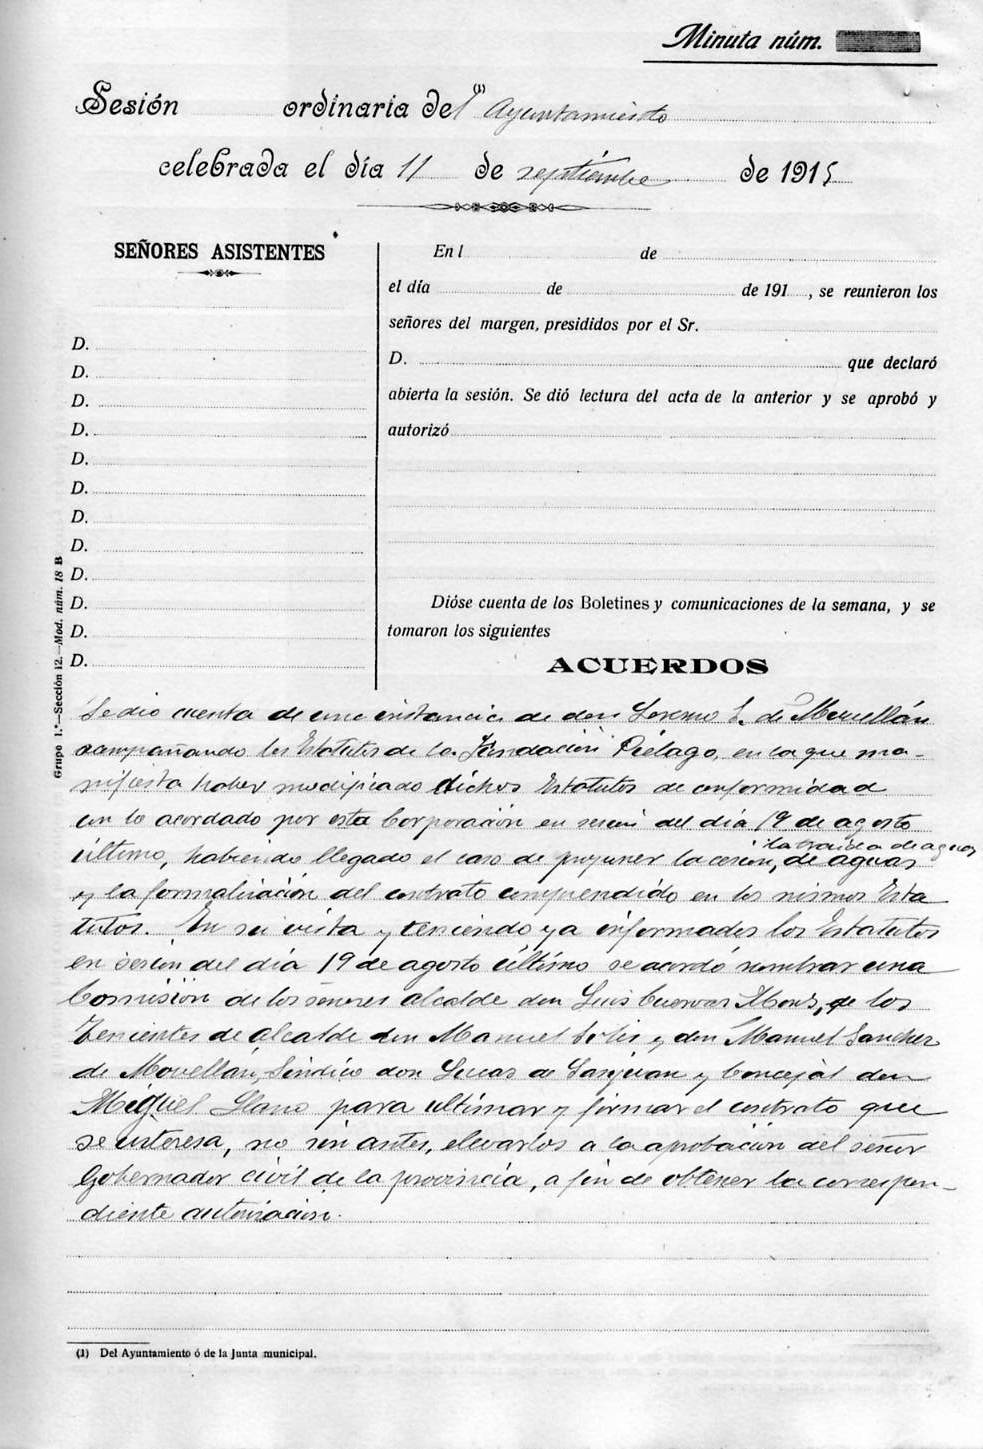 Minuta núm.
Sesión ordinaria del (1) Ayuntamiento
celebrada el día 11 de septiembre de 1915
SEÑORES ASISTENTES
D.
D.
D.
D.
D.
D.
D.
D.
D.
D.
D.
D.
Grupo 1.º—Sección 12.—Mod. núm. 18 B
En l de
el día de de 191 , se reunieron los
señores del margen, presididos por el Sr.
D. que declaró
abierta la sesión. Se dió lectura del acta de la anterior y se aprobó y
autorizó
Dióse cuenta de los Boletines y comunicaciones de la semana, y se
tomaron los siguientes
ACUERDOS
Se dio cuenta de una instancia de don Lorenzo S. de Movellán
acompañando los Estatutos de la Fundación Piélago, en la que ma-
nifiesta haber modificado dichos Estatutos de conformidad
con lo acordado por esta Corporación en sesión del día 19 de agosto
la traida de aguas
último, habiendo llegado el caso de proponer la cesión, de aguas
y la formalización del contrato comprendido en los mismos Esta
tutos. En su vista y teniendo ya informados los Estatutos
en sesión del día 19 de agosto último se acordó nombrar una
Comisión de los señores alcalde don Luis Cuervas Mons, de los
Tenientes de alcalde don Manuel Solis y don Manuel Sanchez
de Movellan, Sindico don Lucas de Sanjuan y Concejal don
Miguel Llano para ultimar y firmar el contrato que
se interesa, no sin antes, elevarlos a la aprobación del señor
Gobernador civil de la provincia, a fin de obtener la correspon-
diente autorización.
(1) Del Ayuntamiento ó de la Junta municipal.